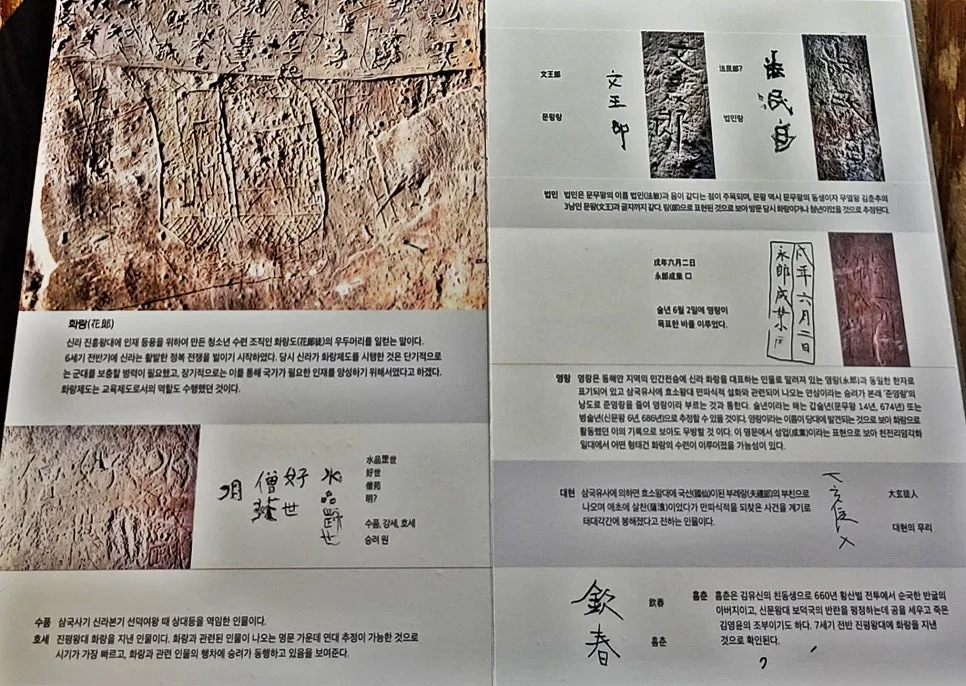 화랑(花郞)
신라 진흥왕대에 인재 등용을 위하여 만든 청소년 수련 조직인 화랑도(花郞徒)의 우두머리를 일컫는 말이다.
6세기 전반기에 신라는 활발한 정복 전쟁을 벌이기 시작하였다. 당시 신라가 화랑제도를 시행한 것은 단기적으로
는 군대를 보충할 병력이 필요했고, 장기적으로는 이를 통해 국가가 필요한 인재를 양성하기 위해서였다고 하겠다.
화랑제도는 교육제도로서의 역할도 수행했던 것이다.
水品
好世
僧
明
水品罡世
好世
僧苑
明?
수품, 강세, 호세
승려 원
수품 삼국사기 신라본기 선덕여왕 때 상대등을 역임한 인물이다.
호세 진평왕대 화랑을 지낸 인물이다. 화랑과 관련된 인물이 나오는 명문 가운데 연대 추정이 가능한 것으로
시기가 가장 빠르고, 화랑과 관련 인물의 행차에 승려가 동행하고 있음을 보여준다.
文王郎
문왕랑
文王郎
法民郎?
법민랑
法民郎
법민 법민은 문무왕의 이름 법민(法敏)과 음이 같다는 점이 주목되며, 문왕 역시 문무왕의 동생이자 무열왕 김춘추의
3남인 문왕(文王)과 글자까지 같다. 랑(郎)으로 표현된 것으로 보아 방문 당시 화랑이거나 청년이었을 것으로 추정된다.
戌年六月二日
永郎成業 口
술년 6월 2일에 영랑이
목표한 바를 이루었다.
戌年六月二日
永郎成業
영랑 영랑은 동해안 지역의 민간전승에 신라 화랑을 대표하는 인물로 알려져 있는 영랑(永郎)과 동일한 한자로
표기되어 있고 삼국유사에 효소왕대 만파식적 설화와 관련되어 나오는 안상이라는 승려가 본래 '준영랑'의
낭도로 준영랑을 줄여 영랑이라 부르는 것과 통한다. 술년이라는 해는 갑술년(문무왕 14년, 674년) 또는
병술년(신문왕 6년, 686년)으로 추정할 수 있을 것이다. 영랑이라는 이름이 당대에 발견되는 것으로 보아 화랑으로
활동했던 이의 기록으로 보아도 무방할 것 이다. 이 명문에서 성업(成業)이라는 표현으로 보아 천전리암각화
일대에서 어떤 형태건 화랑의 수련이 이루어졌을 가능성이 있다.
대현 삼국유사에 의하면 효소왕대에 국선(國仙)이된 부례랑(夫禮郎)의 부친으로
나오며 애초에 살찬(薩飡)이었다가 만파식적을 되찾은 사건을 계기로
태대각간에 봉해졌다고 전하는 인물이다.
大玄徒人
대현의 무리
欽春
欽春
흠춘
흠춘 흠춘은 김유신의 친동생으로 660년 황산벌 전투에서 순국한 반굴의
아버지이고, 신문왕대 보덕국의 반란을 평정하는데 공을 세우고 죽은
김영윤의 조부이기도 하다. 7세기 전반 진평왕대에 화랑을 지낸
것으로 확인된다.